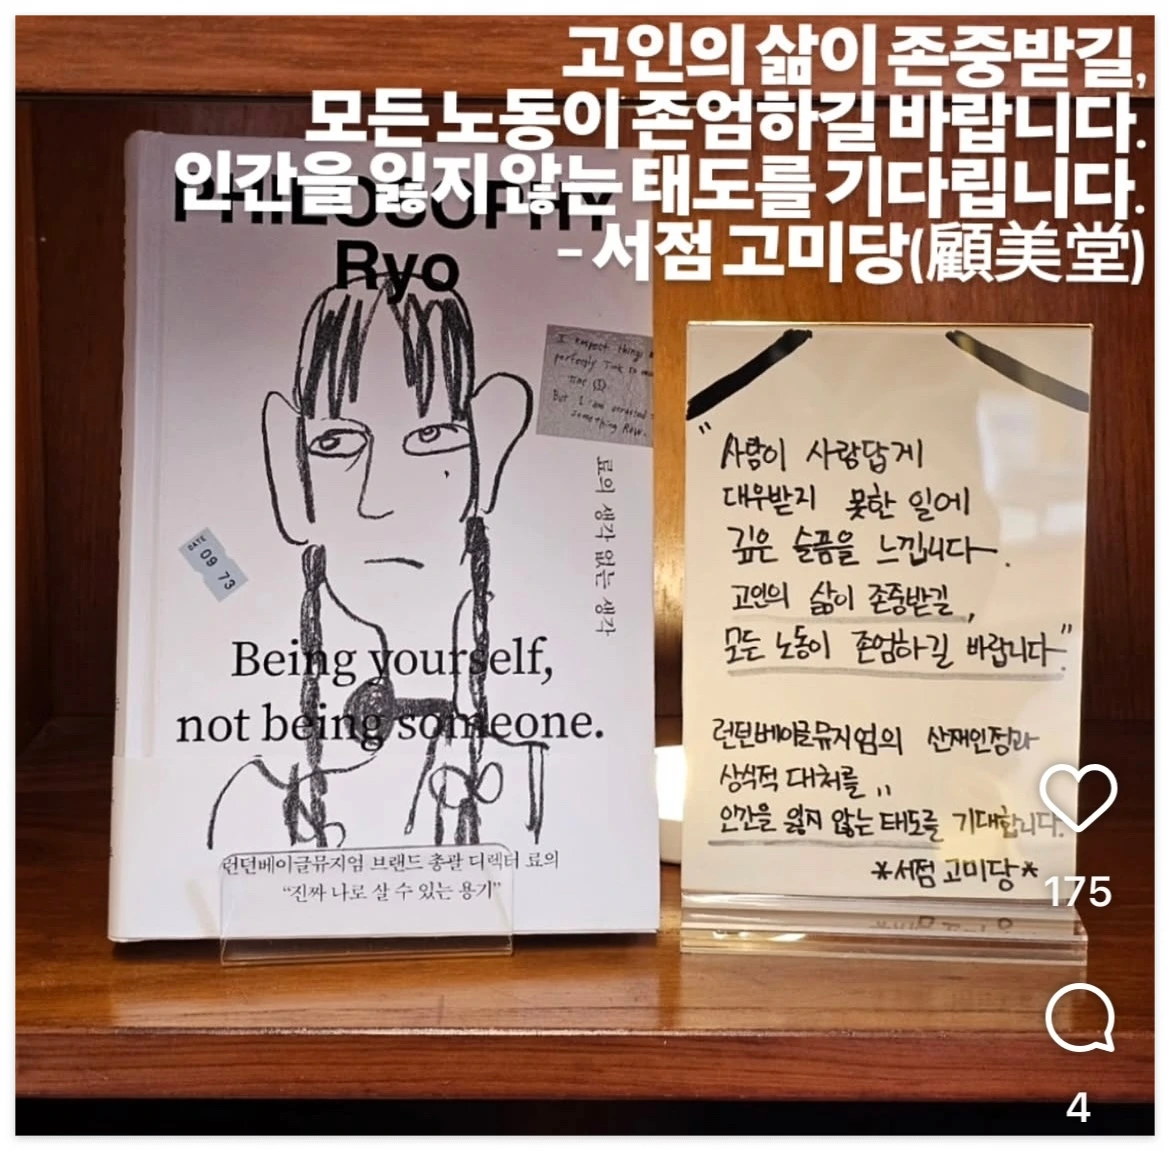 고인의 삶이 존중받길,
모든 노동이 존엄하길 바랍니다.
인간을 잃지 않는 태도를 기다립니다.
- 서점 고미당(顧美堂)
PHILOSOPHY
Ryo
I respect things
perfectly Took so
Time
But I am attracted
something Raw.
료의 생각 없는 생각
DATE
09 73
Being yourself,
not being someone.
런던베이글뮤지엄 브랜드 총괄 디렉터 료의
“진짜 나로 살 수 있는 용기”
"사람이 사람답게
대우받지 못한 일에
깊은 슬픔을 느낍니다.
고인의 삶이 존중받길,
모든 노동이 존엄하길 바랍니다"
런던베이글뮤지엄의 산재인정과
상식적 대처를,,
인간을 잃지 않는 태도를 기대합니다.
*서점 고미당*
175
4